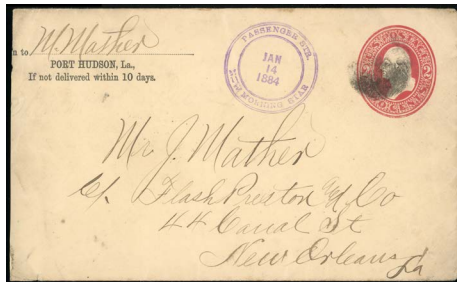 n to M. Mather
PORT HUDSON, La.,
If not delivered within 10 days.
PASSENGER STR.
JAN
14
1884
MORNING STAR
U.S. POSTAGE
TWO CENTS
Mr J. Mather
c/. Flash Preston & Co
44 Canal St
New Orleans
La